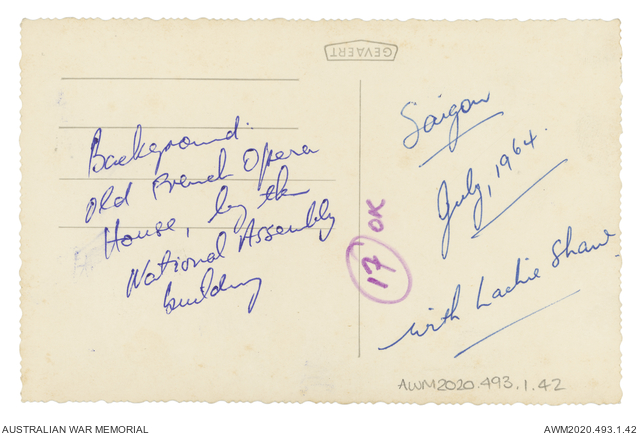 GEVAERT
Background:
Old French Opera
House, by the
National Assembly
building
17 OK
Saigon
July, 1964.
with Lachie Shaw.
AWM2020.493.1.42
AUSTRALIAN WAR MEMORIAL
AWM2020.493.1.42